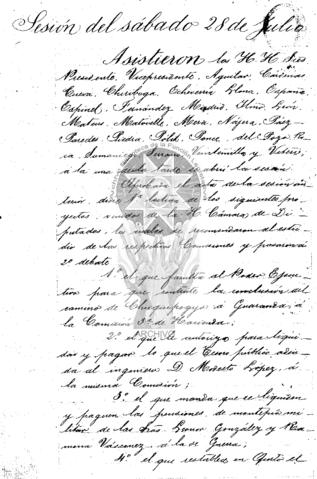 Sesión del sábado 28 de Julio
Asistieron los H. H. Sres
Presidente, Vicepresidente, Aguilar, Cárdenas
Cueva, Chiriboga, Echeverría Llona, España,
Espinel, Fernández Madrid,
Mateus, Matovelle, Mera, Nájera, Páez,
Paredes, Piedra, Polit, Ponce, del Pozo,
Veintemilla y
a la una
Aprobada el acta de la sesión an
terior, dióse lectura de los siguientes pro
yectos, venidos de la H. Cámara de Di
putados, los cuales se recomendaron al estu
dio de las respectivas Comisiones y pasaron á
2o debate
1o el que faculta al Poder Ejecu
tivo para que contrate la conclusión del
camino de Chuquipogyo á Guaranda, á
la Comisión 3a de Hacienda;
2o el que le autoriza para liqui
dar y pagar lo que el Tesoro público adeu
da al ingeniero D. Modesto López, á
la misma Comisión;
3o el que manda que se liquiden
y paguen las pensiones de montepío mi
litar de las Sras Leonor González y Ra
mona Vásconez, á la de Guerra;
4o el que restablece en el
ARCHIVO